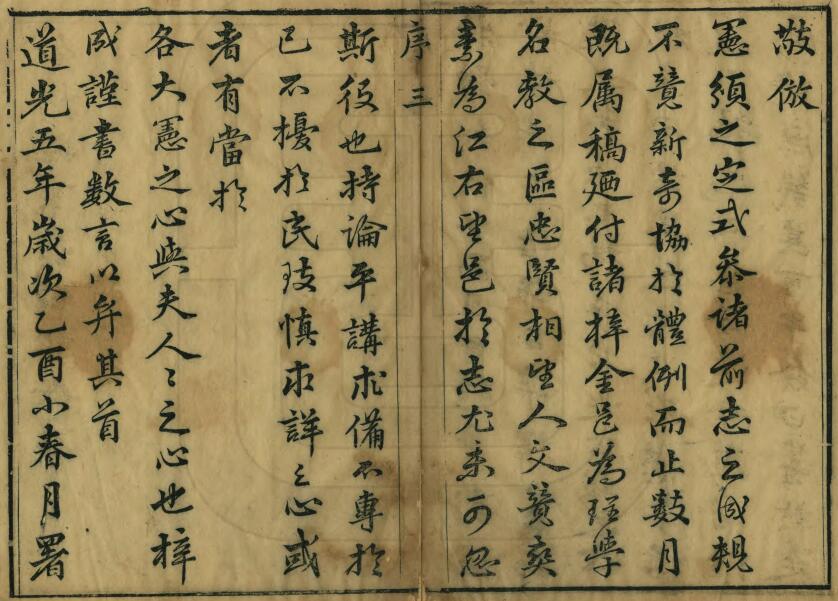 敬倣
憲頒之定式叅諸前志之成規
不竸新奇協於體例而止數月
既属稿廼付諸梓金邑為理學
名教之區忠賢相望人文竸爽
素為江右望邑於志尤未可忽
序 三
斯役也持論平講求備不專於
已不擾於民玆慎求詳之心或
者有當於
各大憲之心與夫人〻之心也梓
成謹書数言以弁其首
道光五年歲次乙酉小春月署